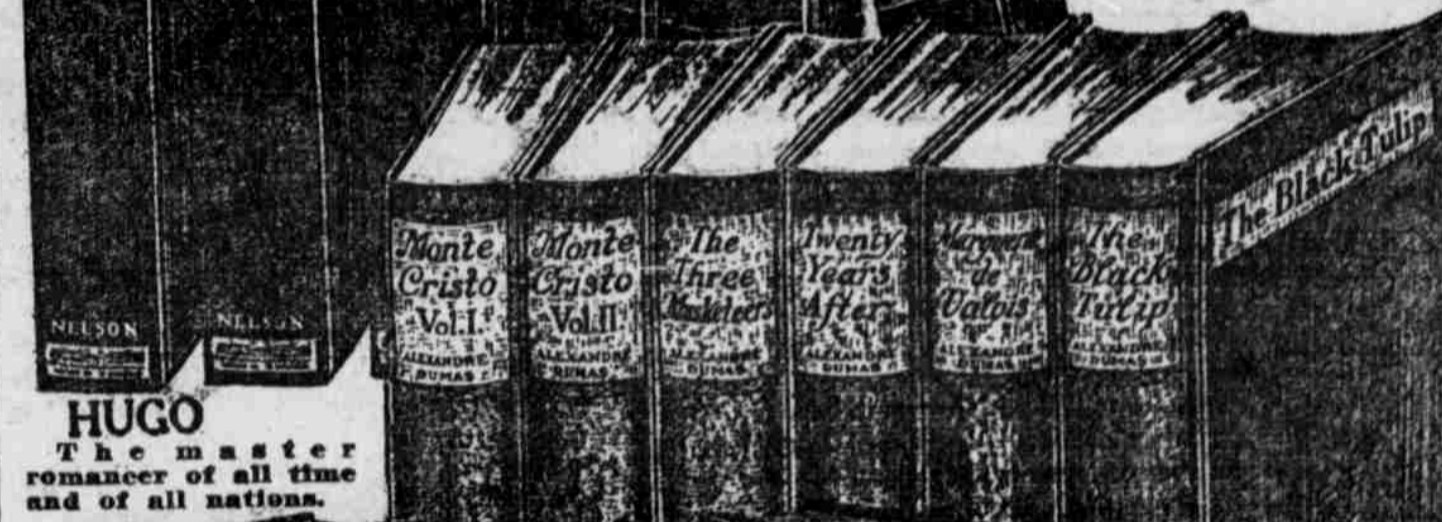 NELSON
NELSON
HUGO
The master
romancer of all time
and of all nations.
Monte
Cristo
Vol. I.
ALEXANDRE
DUMAS
Monte
Cristo
Vol. II
ALEXANDRE
DUMAS
The
Three
Musketeers
ALEXANDRE
DUMAS
Twenty
Years
After
ALEXANDRE
DUMAS
de
Valois
ALEXANDRE
DUMAS
The
Black
Tulip
ALEXANDRE
DUMAS
The Black Tulip